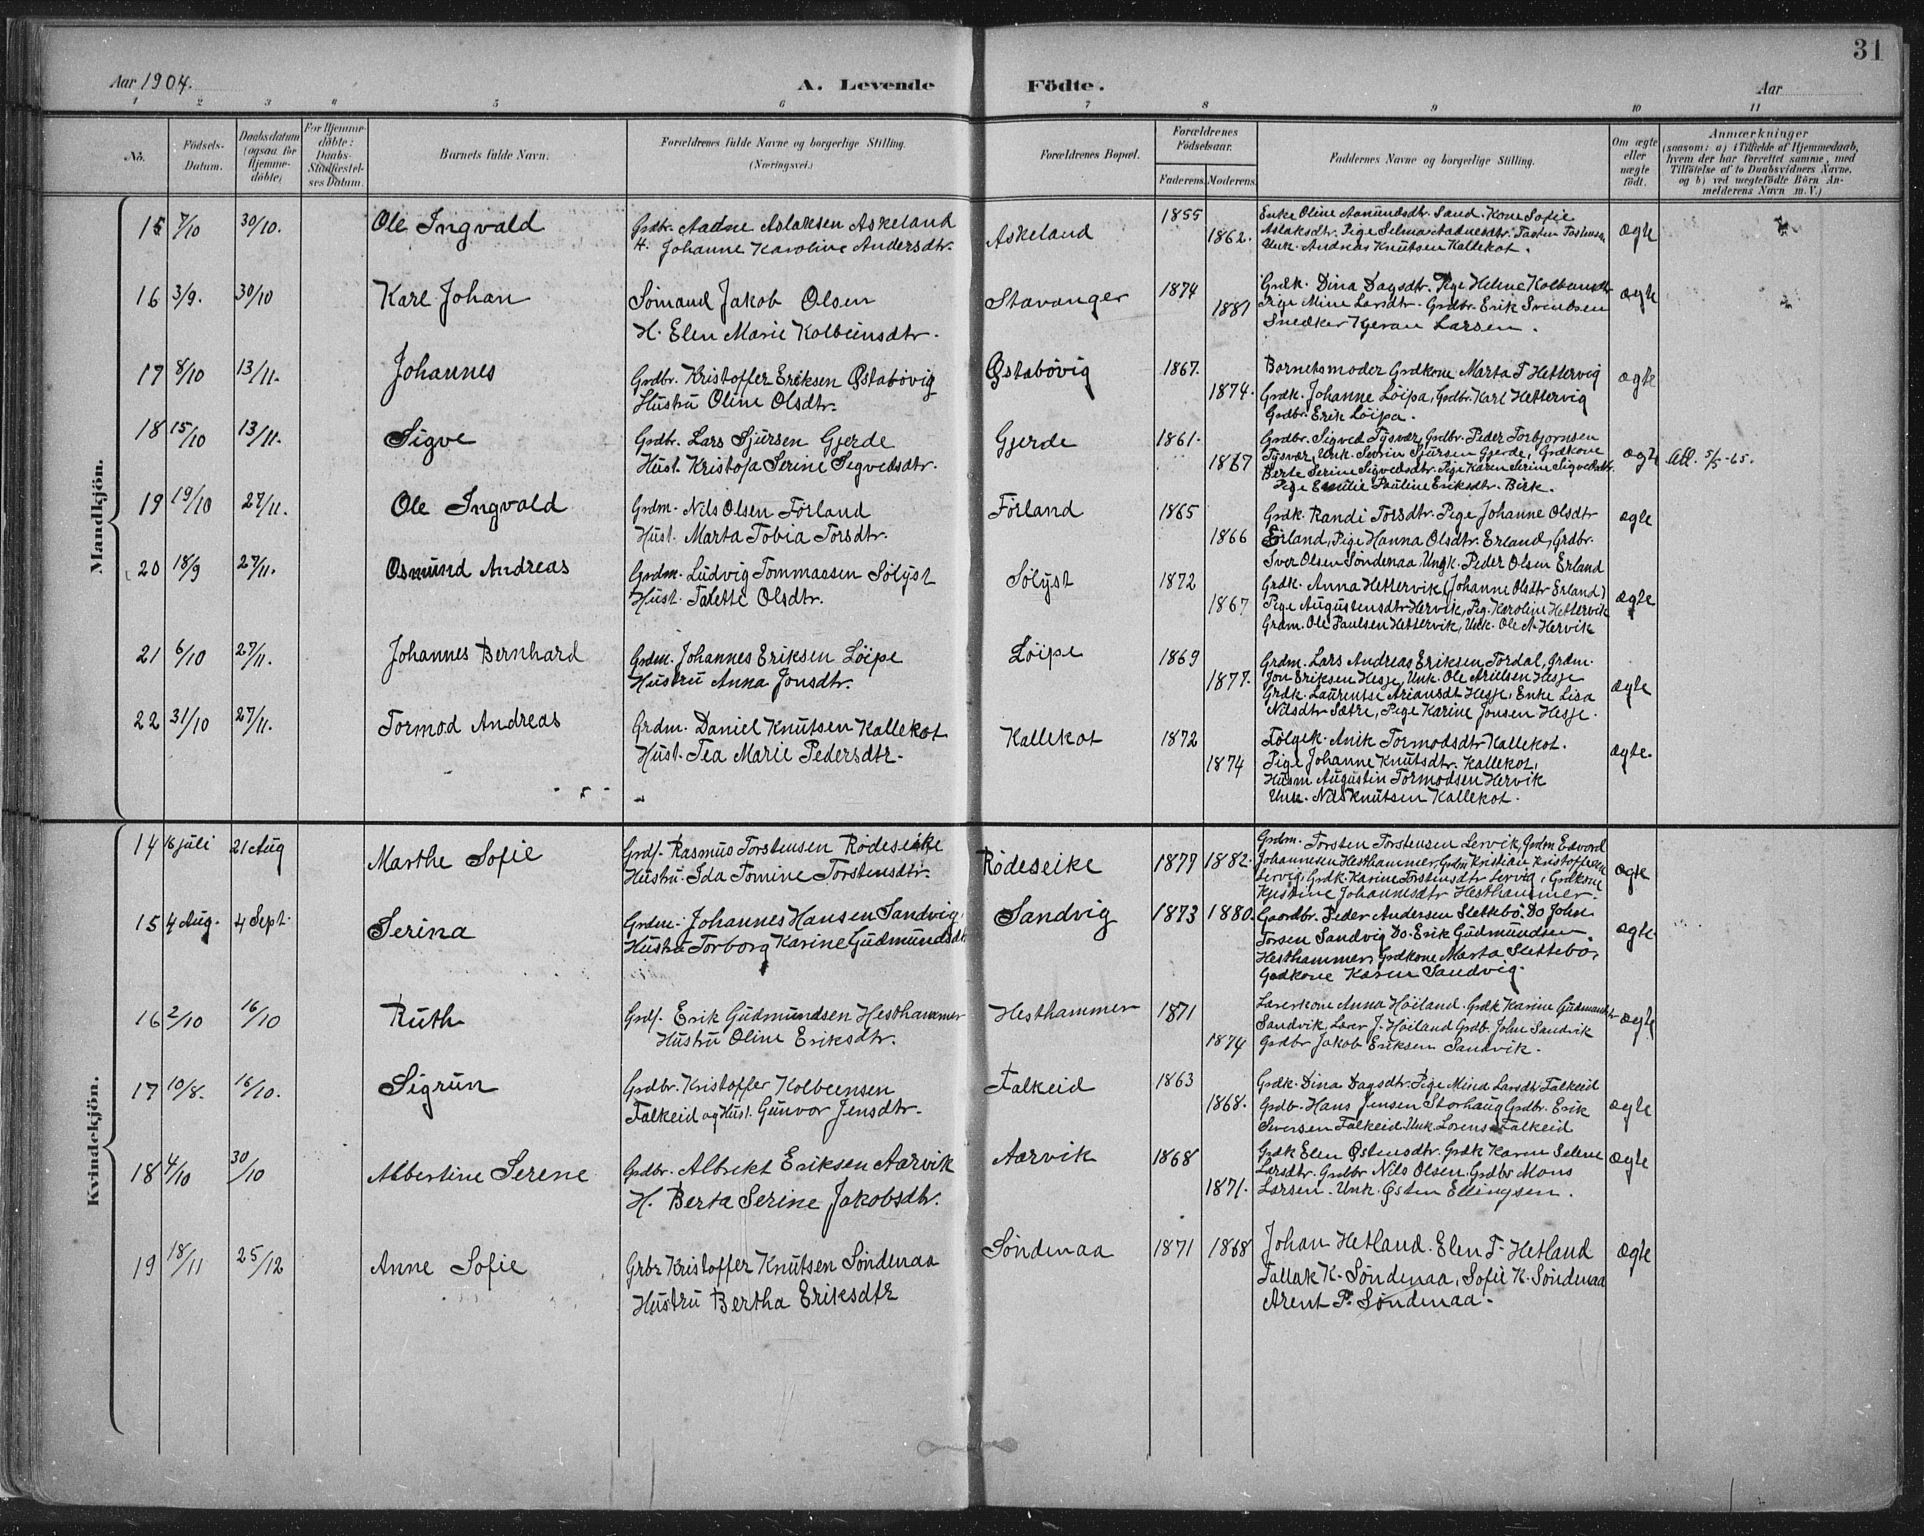 31
Aar 1904. A. Levende Födte. Aar
1 2 3 4 5 6 7 8 9 10 11
No. Födsels-Datum. Daabsdatum (ogsaa for Hjemme-döbte) For Hjemme-döbte: Daabs-Stadfæstel-ses Datum. Barnets fulde Navn. Forældrenes fulde Navne og borgerlige Stilling. (Næringsvei.) Forældrenes Bopæl. Forældrenes Födselsaar. Faderens. Moderens. Faddernes Navne og borgerlige Stilling. Om ægte eller uægte födt. Anmærkninger (saasom: a) i Tilfælde af Hjemmedaab, hvem der har forrettet samme, med Tilföielse af to Daabsvidners Navne, og b) ved uægtefödte Börn An-melderens Navn m. V.)
Mandkjön.
15 7/10 30/10. Ole Ingvald Grdbr. Aadne Aslaksen Askeland
H. Johanne Karoline Andersdtr. Askeland 1855 1862. Enke Oline Aamundsdtr. Sand. Kone Sofie
Aslaksdtr. Pige Selma Aadnesdtr.
Unk. Andreas Knutsen Kallekot. ægte
16 3/9. 30/10 Karl Johan Sömand Jakob Olsen
H. Elen Marie Kolbeinsdtr. Stavanger 1874 1881 Grdk. Dina Dagsdtr. Pige Helene Kolbeinsdtr
Pige Mine Larsdtr. Grdbr. Erik Svendsen
Snedker Kjeran Larsen. ægte
17 8/10 13/11. Johannes Grdbr. Kristoffer Eriksen Østabövig
Hustru Oline Olsdtr. Østabövig 1867. 1874. Barnetsmoder Grdkone Marta T Hettervig
Grdk. Johanne Löipa, Grdbr. Karl Hettervig
Grdbr. Erik Löipa. ægte
18 15/10 13/11. Sigve Grdbr. Lars Sjursen Gjerde
Hust. Kristofa Serine Sigvedsdtr. Gjerde 1861. 1867 Grdbr. Sigved Tysvær, Grdbr. Peder Torbjornsen
Tysvær, Unk. Severin Sjursen Gjerde, Grdkone
Berte Serine Sigvedsdtr. Pige Karen Serine Sigvedsdtr.
Pige Emilie Pauline Eriksdtr. Birk. ægte Att. 5/5-65.
19 19/10 27/11. Ole Ingvald Grdm. Nils Olsen Förland
Hust. Marta Tobia Torsdtr. Förland 1865 1866 Grdk. Randi Torsdtr. Pige Johanne Olsdtr
Erland, Pige Hanna Olsdtr. Erland, Grdbr.
Iver Olsen Söndenaa, Ungk. Peder Olsen Erland ægte
20 18/9 27/11. Osmund Andreas Grdm. Ludvig Tommassen Sölyst
Hust. Talette Olsdtr. Sölyst 1872 1867 Grdk. Anna Hettervik (Johanne Olsdtr Erland)
Pige Augustensdtr Hervik, Pig. Karoline Hettervik
Grdm. Ole Paulsen Hettervik, Unk. Ole A Hervik ægte
21 6/10 27/11. Johannes Bernhard Grdm. Johannes Eriksen Löipe
Hustru Anna Jonsdtr. Löipe 1869 1877. Grdm. Lars Andreas Eriksen Tordal, Grdm.
Jon Eriksen Hesje, Unk. Ole Hesje
Grdk. Laurentse Hesje, Enke Lisa
Nilsdtr Sætre, Pige Karine Jonsen Hesje. ægte
22 31/10 27/11. Tormod Andreas Grdm. Daniel Knutsen Kallekot
Hust. Tea Marie Pedersdtr. Kallekot 1872 1874 Fölgek. Anik Tormodsdtr Kallekot.
Pige Johanne Knutsdtr. Kallekot,
Husm. Augustin Tormodsen Hervik
Unk. Nils Knutsen Kallekot. ægte.
Kvindekjön.
14 16 juli 21 Aug Marthe Sofie Grdf. Rasmus Torstensen Rödeseike
Hustru. Ida Tomine Torstensdtr. Rödeseike 1877 1882. Grdm. Torsten Torstensen Lervik, Grdm Edvard
Johannesen Hesthammer, Grdm Kristian Kristoffersen
Lervig, Grdk. Karine Torstensdtr Lervig, Grdkone
Kjistine Johannesdtr Hesthammer. ægte
15 4 Aug. 4 Sept. Serina Grdm. Johannes Hansen Sandvig
Hustru Torborg Karine Gudmundsdtr Sandvig 1873 1880. Gaardbr. Peder Andersen Slettebö. Do John
Torsen Sandvig Do. Erik Gudmundsen
Hesthammer, Grdkone Marta Slettebö,
Grdkone Karen Sandvig. ægte
16 2/10 16/10 Ruth Grdf. Erik Gudmundsen Hesthammer
Hustru Oline Eriksdtr. Hesthammer 1871 1874 Lærerkone Anna Höiland. Grdk Karine Gudmundsdtr
Sandvik, Lærer J. Höiland Grdb. John Sandvik
Grdbr Jakob Eriksen Sandvik. ægte
17 10/8. 16/10. Sigrun Grdbr. Kristoffer Kolbeensen
Falkeid og Hust. Gunvor Jensdtr. Falkeid 1863 1868. Grdk. Dina Dagsdtr. Pige Mina Larsdtr Falkeid
Grdb. Hans Jensen Storhaug Grdbr. Erik
Seversen Falkeid. Unk. Lorens Falkeid ægte
18 4/10 30/10 Albertine Serene Grdbr. Albrekt Eriksen Aarvik
H. Berta Serine Jakobsdtr. Aarvik 1868 1871. Grdk Elen Østensdtr. Grdk Karen Selene
Larsdtr. Grdbr Nils Olsen. Grdbr Mons
Larsen. Unk. Østen Ellingsen. ægte
19 18/11 25/12 Anne Sofie Grbr Kristoffer Knutsen Söndenaa
Hustru Bertha Eriksdtr Söndenaa 1871 1868 Johan Hetland. Elen T. Hetland
Tallak K. Söndenaa, Sofie K. Söndenaa
Arent P. Söndenaa. ægte